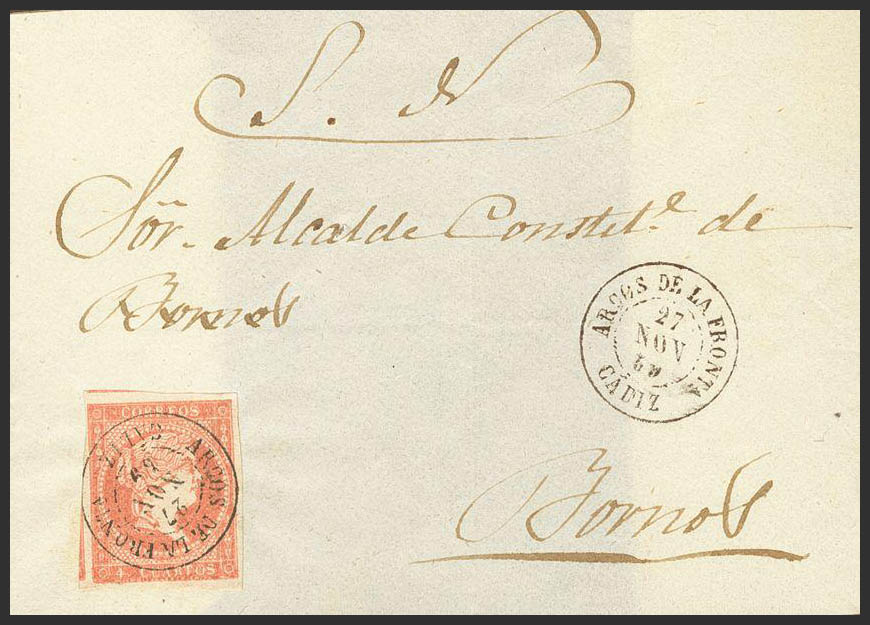 S. N
Sōr. Alcalde Constitl. de
Bornos
ARCOS DE LA FRONTA
27
NOV
59
CADIZ
CORREOS
ARCOS DE LA FRONTA
27
NOV
59
CADIZ
4 CUARTOS
Bornos